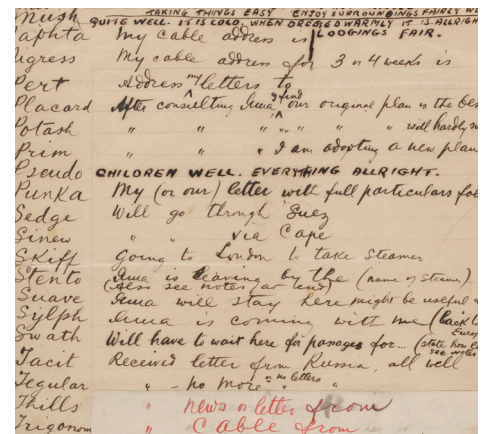 TAKING THINGS EASY ENJOY SURROUNDINGS FAIRLY WE
QUITE WELL. IT IS COLD. WHEN DRESSED WARMLY IT IS ALLRIGH
LODGINGS FAIR.
aphta My cable address is
gress My cable address for 3 or 4 weeks is
Pert Address my letters to
Placard After consulting Anna I find our original plan is the bes
Potash " " " " " " " will hardly su
Prim " " " I am adopting a new plan
Pseudo CHILDREN WELL. EVERYTHING ALLRIGHT.
Punka My (or our) letter with full particulars fol
Sedge Will go through Suez
Sinew " " via Cape
Skiff Going to London to take steamer
Stento Anna is leaving by the (name of steamer)
(Also see notes at end)
Suave Anna will stay here might be useful
Sylph Anna is coming with me (back to
Europ
Swath Will have to wait here for passages for... (state how lo
see notes
Tacit Received letter from Russia, all well
Tegular " - no more " "
or no letters
Thills " news or letter from
Trigonom " cable from